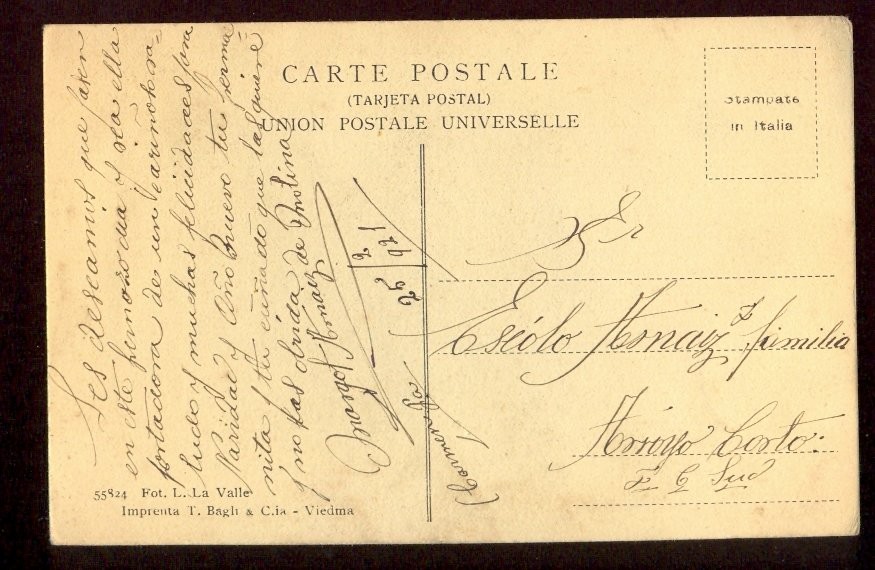 CARTE POSTALE
(TARJETA POSTAL)
UNION POSTALE UNIVERSELLE
Stampate
in Italia
Les deseamos que pasen
en este hermoso dia y sea ella
portadora de un cariñoso sa-
ludo y muchas felicidades para
Navidad y Año nuevo tu herma
nita y tu cuñado que las quiere
y no las olvida de Molina
Arnaiz
25
921
Sr
Arnaiz y familia
Arroyo Corto:
F C Sud
55824 Fot. L. La Valle
Imprenta T. Bagli & C.ia - Viedma